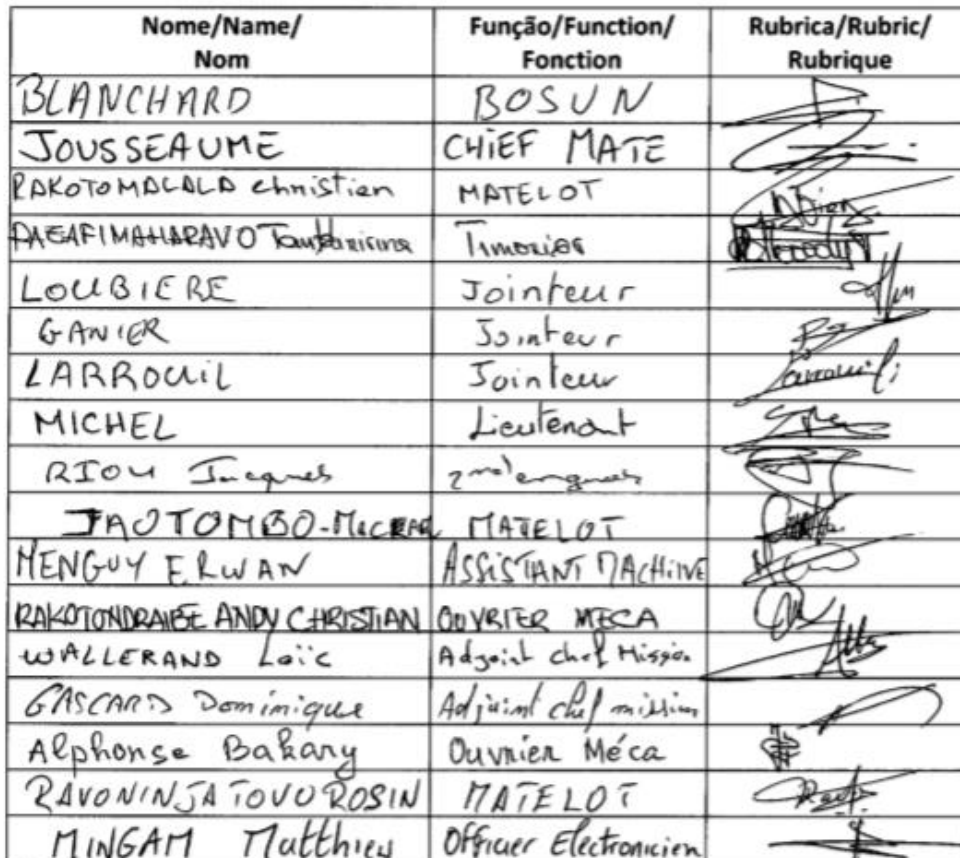 Nome/Name/ Função/Function/ Rubrica/Rubric/
Nom Fonction Rubrique
BLANCHARD BOSUN
JOUSSEAUME CHIEF MATE
RAKOTOMALALA Christian MATELOT
Timonier
LOUBIERE Jointeur
GANIER Jointeur
LARROUIL Jointeur Larrouil
MICHEL Lieutenant
RIOU Jacques
JAOTOMBO- MATELOT
MENGUY ERWAN ASSISTANT MACHINE
RAKOTONDRAIBE ANDY CHRISTIAN OUVRIER MECA
WALLERAND Loïc Adjoint chef Mission
GASCARD Dominique Adjoint chef mission
Alphonse Bakary Ouvrier Méca
RAVONINJATOVO ROSIN MATELOT
MINGAM Matthieu Officier Electronicien